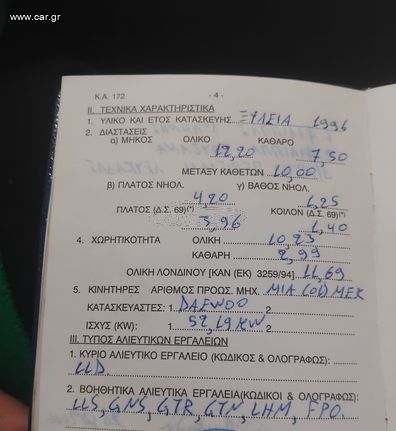 www.car.gr
Κ.Α. 172 - 4 -
ΙΙ. ΤΕΧΝΙΚΑ ΧΑΡΑΚΤΗΡΙΣΤΙΚΑ
1. ΥΛΙΚΟ ΚΑΙ ΕΤΟΣ ΚΑΤΑΣΚΕΥΗΣ ΞΥΛΕΙΑ 1996
2. ΔΙΑΣΤΑΣΕΙΣ
α) ΜΗΚΟΣ ΟΛΙΚΟ ΚΑΘΑΡΟ
12,20 7,50
ΜΕΤΑΞΥ ΚΑΘΕΤΩΝ 10,00
β) ΠΛΑΤΟΣ ΝΗΟΛ. γ) ΒΑΘΟΣ ΝΗΟΛ.
4,20 1,25
ΠΛΑΤΟΣ (Δ.Σ. 69)(*) ΚΟΙΛΟΝ (Δ.Σ. 69)(*)
3,96 1,40
4. ΧΩΡΗΤΙΚΟΤΗΤΑ ΟΛΙΚΗ 10,23
ΚΑΘΑΡΗ 2,99
ΟΛΙΚΗ ΛΟΝΔΙΝΟΥ [ΚΑΝ (ΕΚ) 3259/94] 11,69
5. ΚΙΝΗΤΗΡΕΣ ΑΡΙΘΜΟΣ ΠΡΟΩΣ. ΜΗΧ. ΜΙΑ (01) ΜΕΚ
ΚΑΤΑΣΚΕΥΑΣΤΕΣ: 1 DAEWOO 2
ΙΣΧΥΣ (KW): 1 52,19 KW 2
ΙΙΙ. ΤΥΠΟΣ ΑΛΙΕΥΤΙΚΩΝ ΕΡΓΑΛΕΙΩΝ
1. ΚΥΡΙΟ ΑΛΙΕΥΤΙΚΟ ΕΡΓΑΛΕΙΟ (ΚΩΔΙΚΟΣ & ΟΛΟΓΡΑΦΩΣ):
LLD.
2. ΒΟΗΘΗΤΙΚΑ ΑΛΙΕΥΤΙΚΑ ΕΡΓΑΛΕΙΑ(ΚΩΔΙΚΟΙ & ΟΛΟΓΡΑΦΩΣ):
LLS, GNS, GTR, GTN, LHM, FPO.